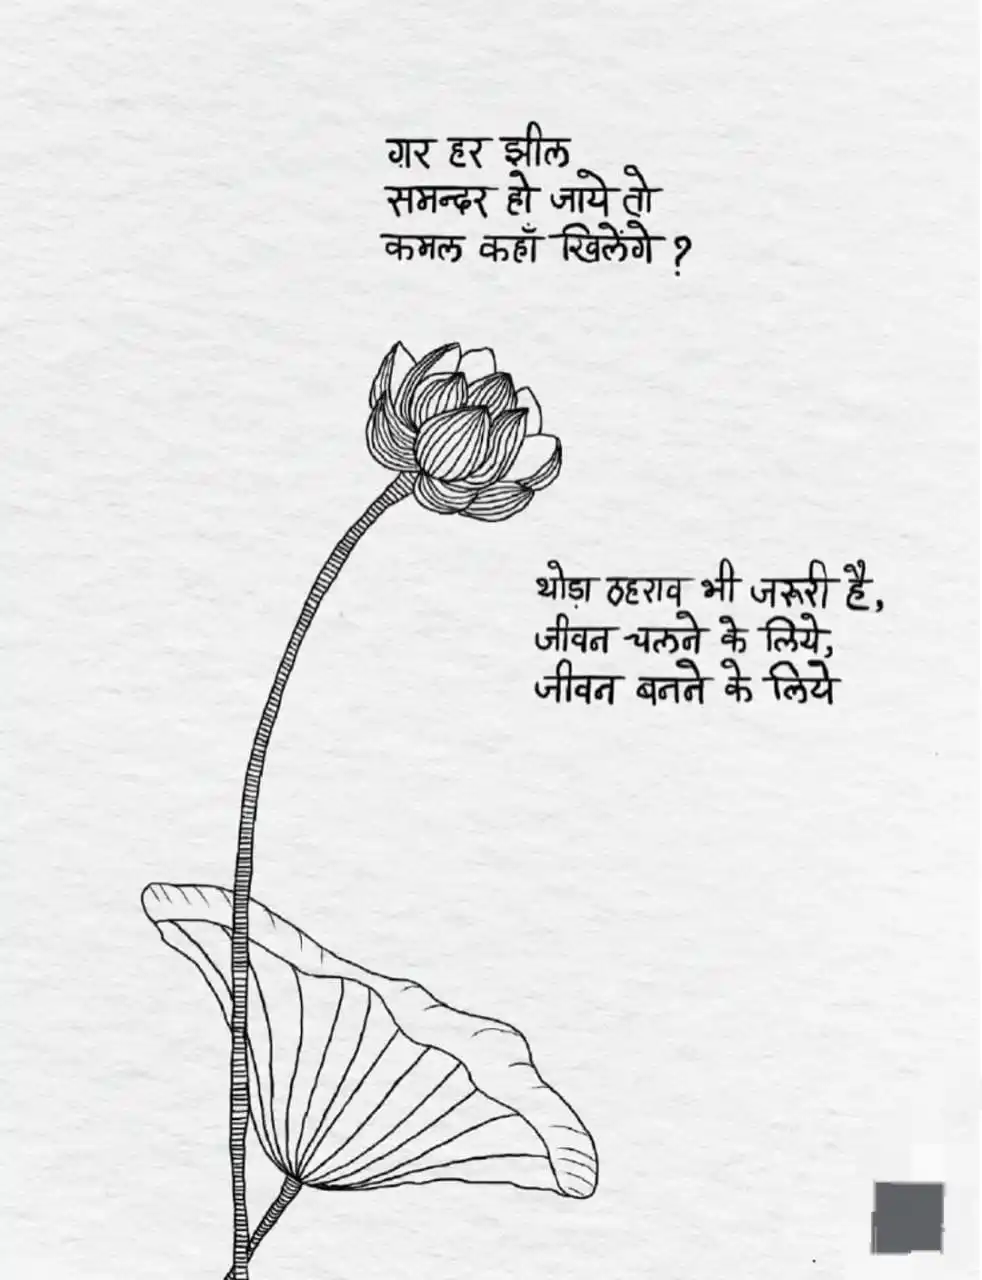 ग़र हर झील
समन्दर हो जाये तो
कमल कहाँ खिलेंगे ?
थोड़ा ठहराव भी जरूरी है,
जीवन चलने के लिये,
जीवन बनने के लिये